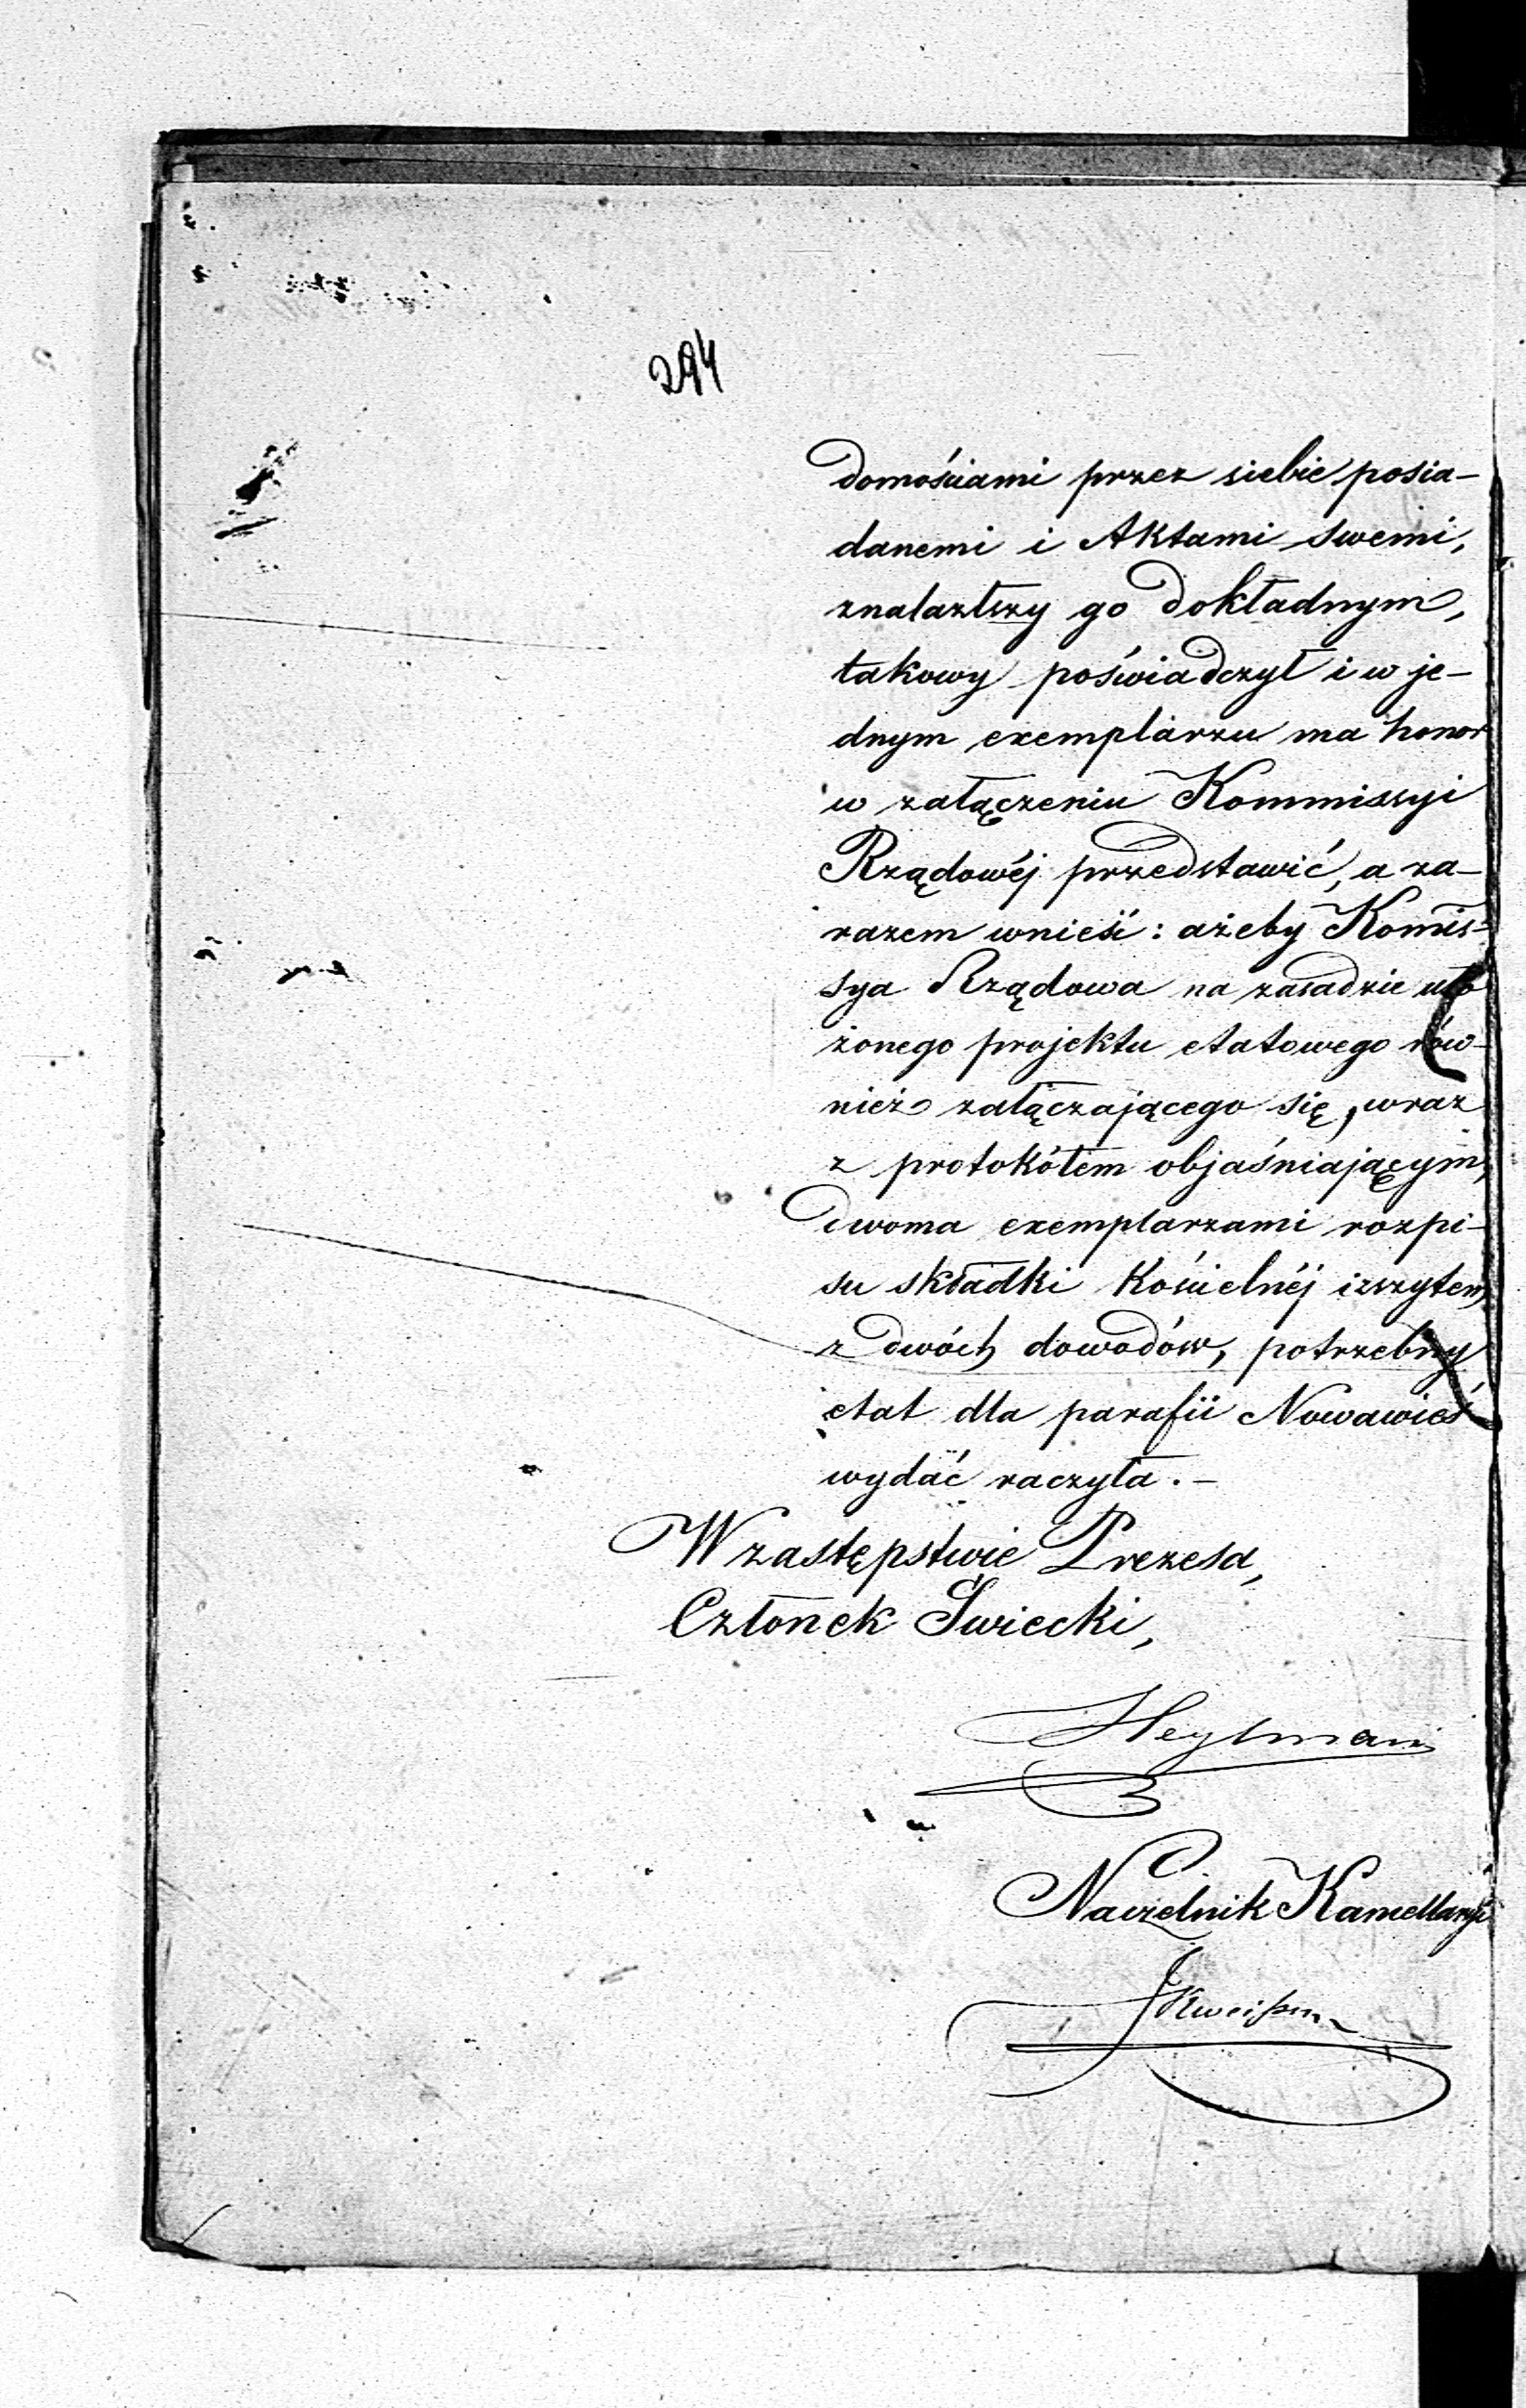 294
domościami przez siebie posia-
danemi i Aktami swemi,
znalazłszy go dokładnym,
takowy poświadczył i w je-
dnym exemplarzu ma honor
w załączeniu Kommissyi
Rządowéj przedstawić, a za-
razem wnieść: ażeby Komis-
sya Rządowa na zasadzie uło
żonego projektu etatowego rów-
nież załączającego się, wraz
z protokółem objaśniającym,
dwoma exemplarzami rozpi-
su składki Kościelnéj i zszytem
z dwóch dowodów, potrzebny
etat dla parafii Nowawieś
wydać raczyła.-
W zastępstwie Prezesa,
Członek Świecki,
Heylman
Naczelnik Kancellaryi